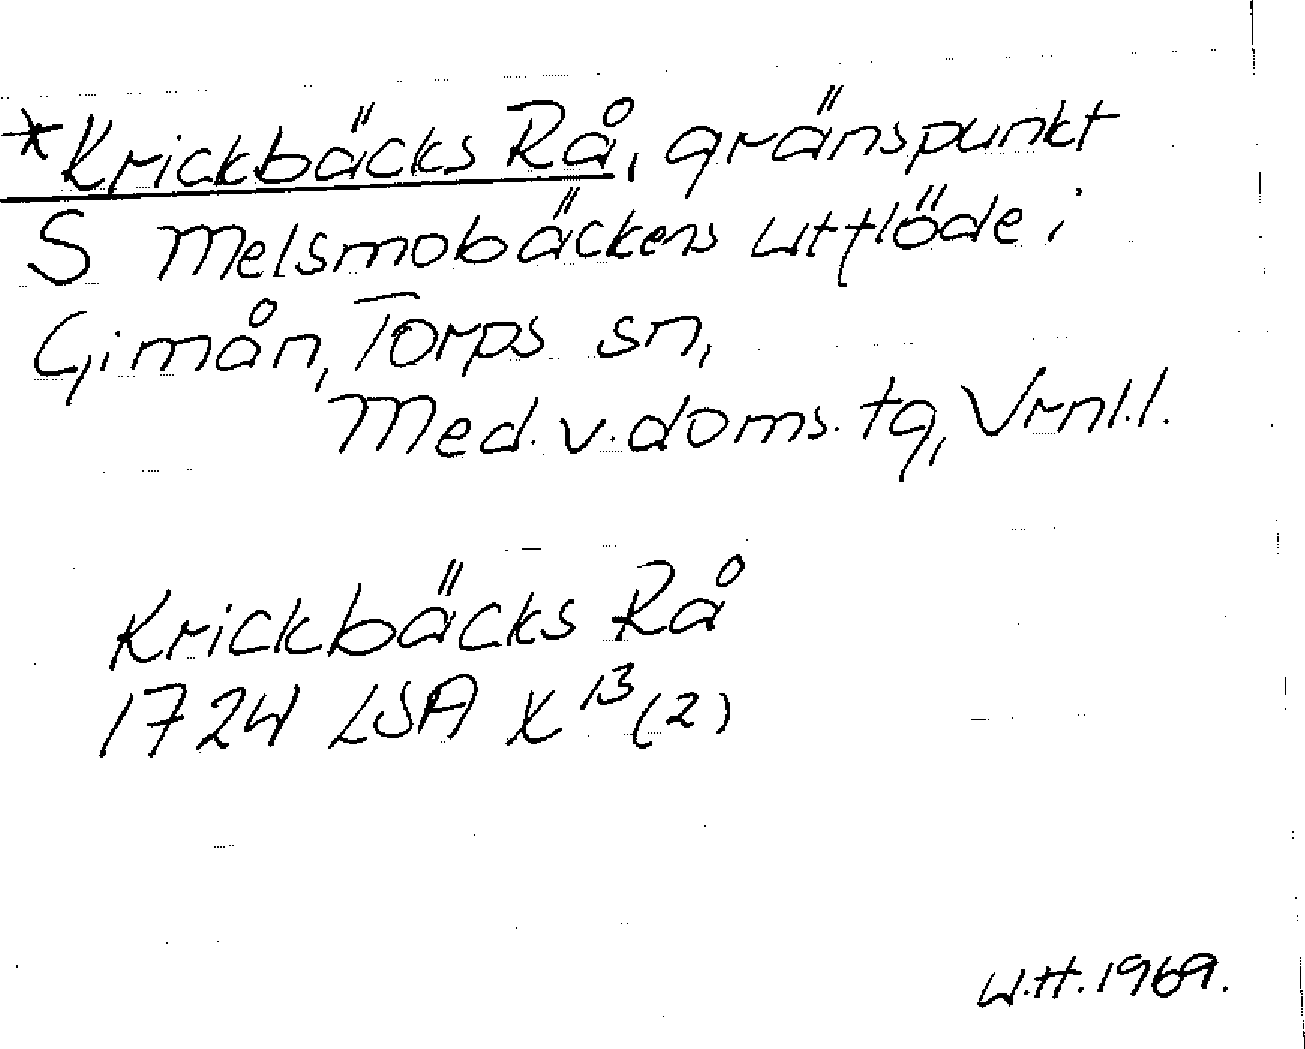 *Krickbäcks Rå, gränspunkt
S Melsmobäckens utflöde i
Gimån, Torps sn,
Med. v. doms. tg, Vrnl. l.
Krickbäcks Rå
1724 LSA X 13 (2)
U.H. 1969.